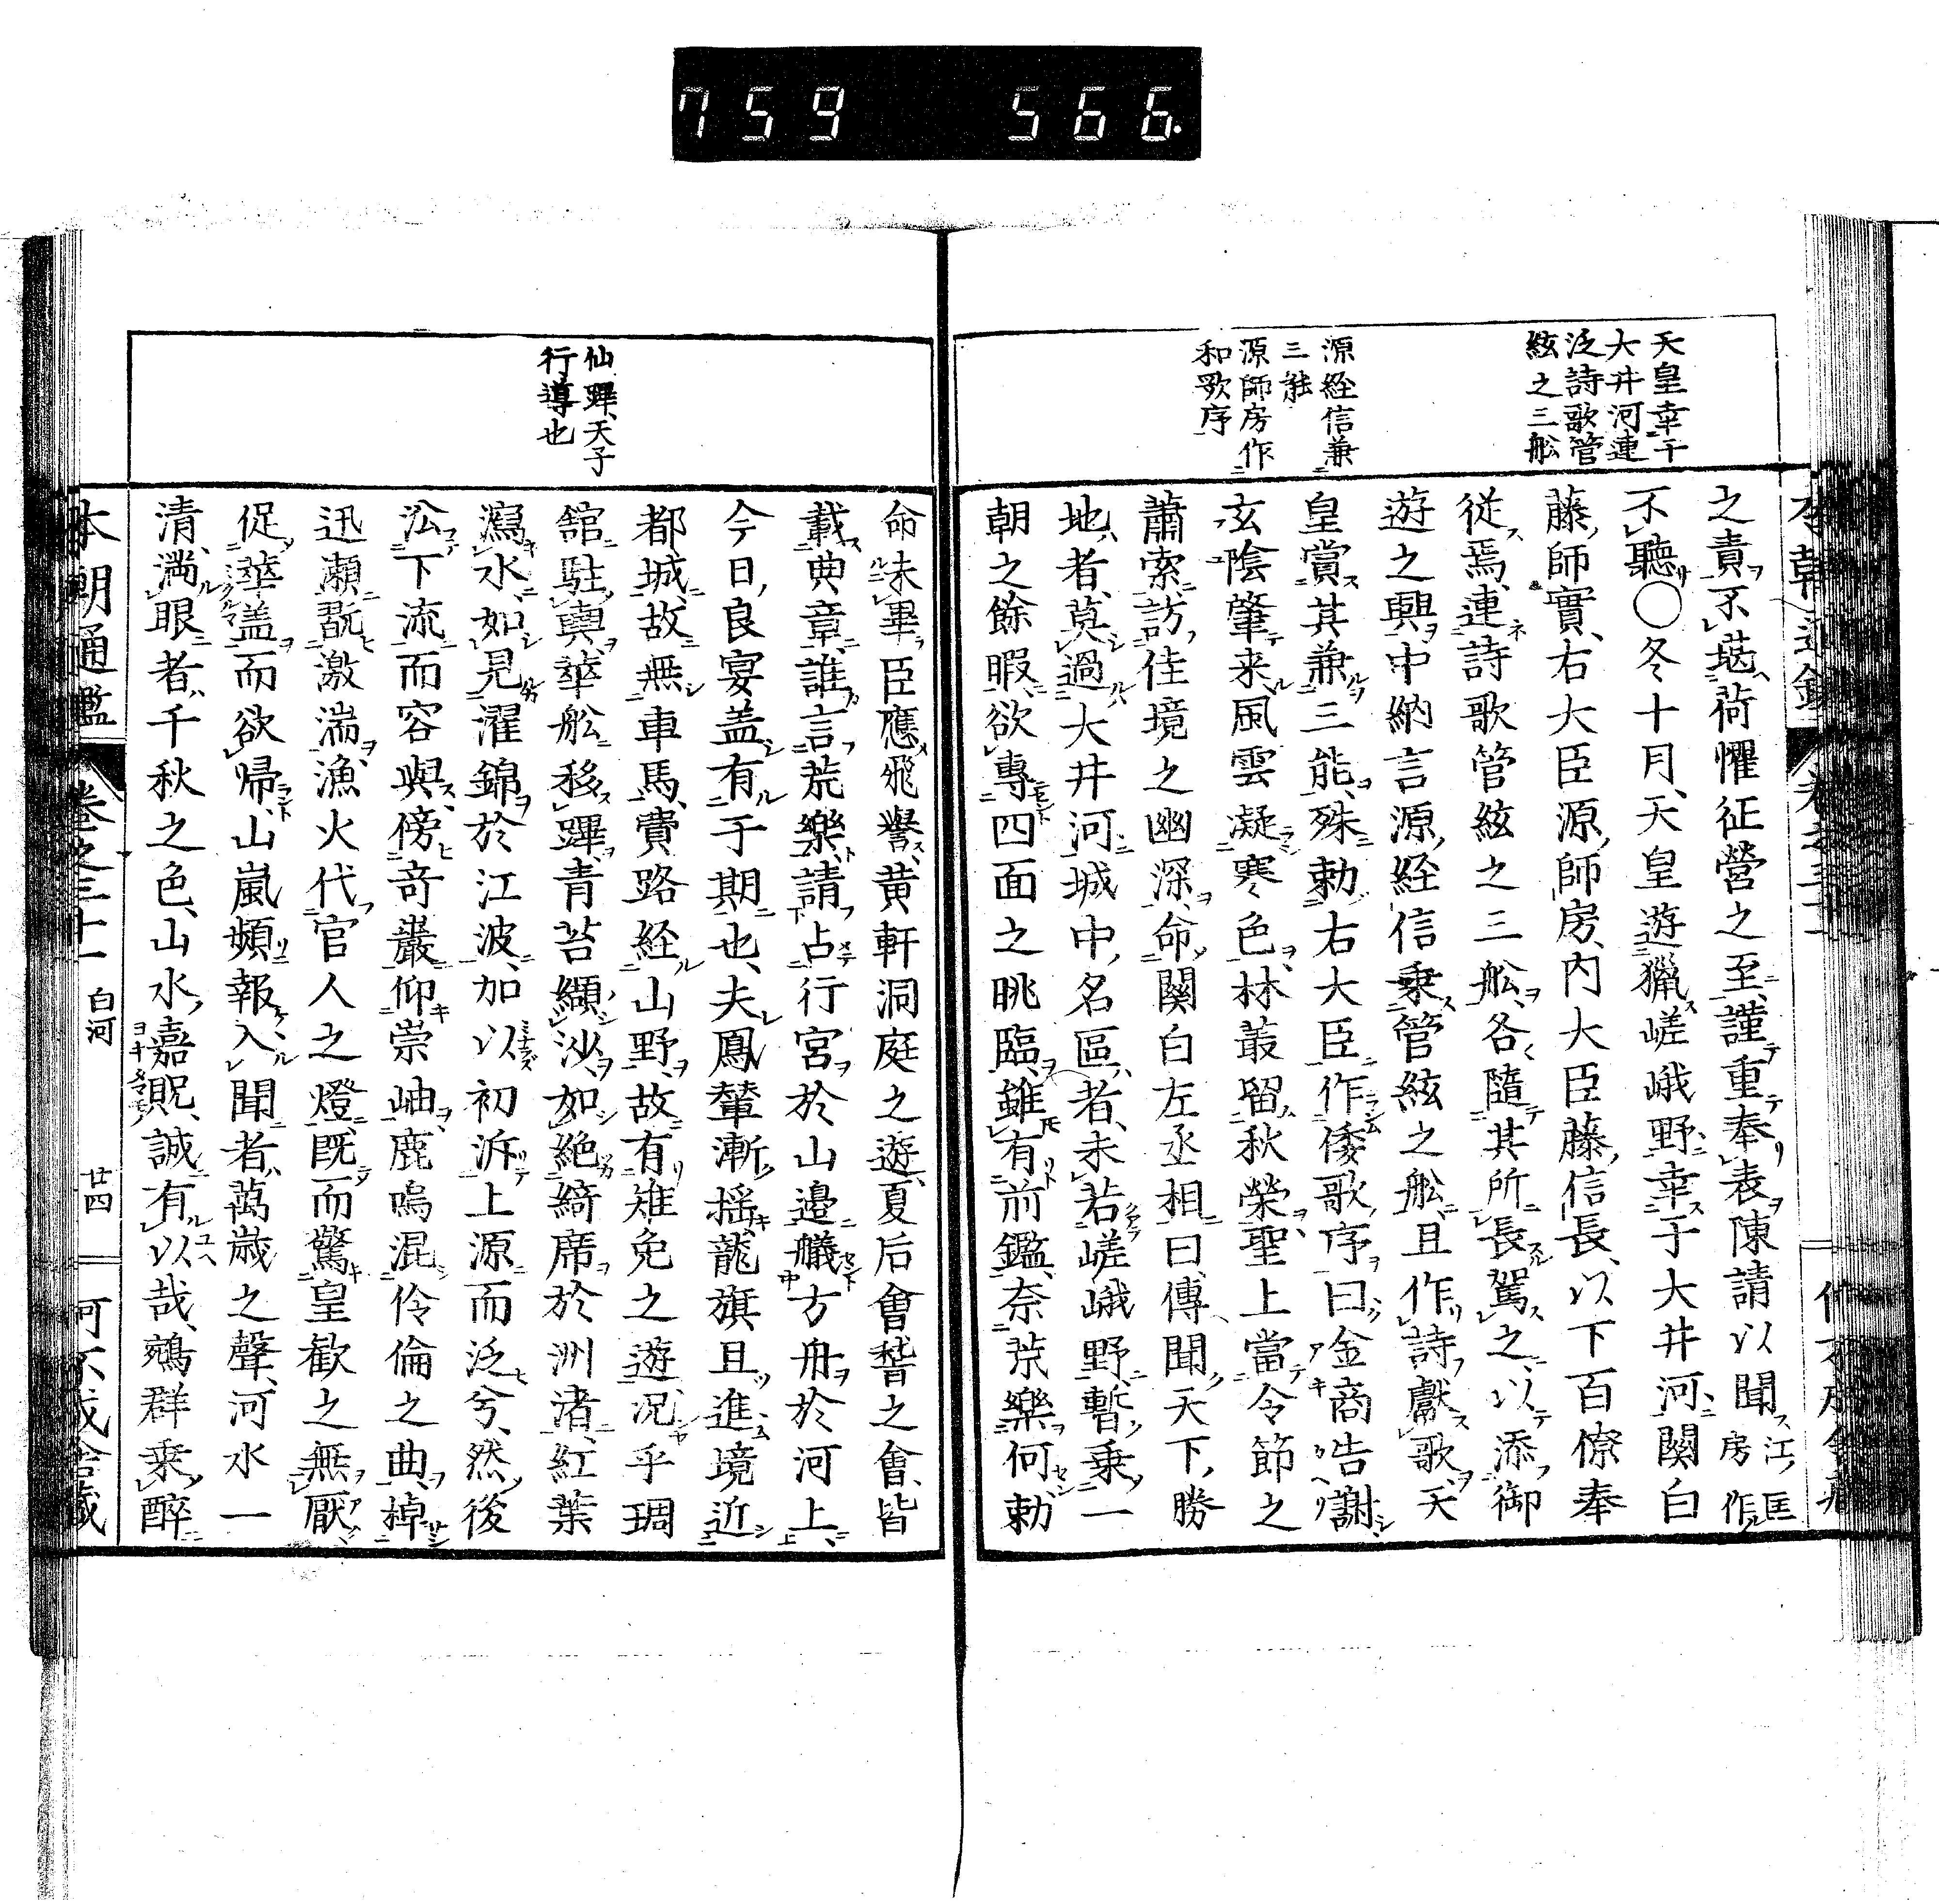 759 566.
天皇幸于
大井河連
泛詩歌管
絃之三舩
源経信兼
三能
源師房作
和歌序
之責不堪荷懼征營之至謹重奉表陳請以聞江匡房作
不聽〇冬十月天皇遊獵嵯峨野幸于大井河関白
藤師實右大臣源師房内大臣藤信長以下百僚奉
従焉連詩歌管絃之三舩各隨其所長駕之以添御
遊之興中納言源経信乗管絃之舩且作詩獻歌天
皇賞其兼三能殊勅右大臣作倭歌序曰金商告謝
玄陰肇来風雲凝寒色林叢留秋榮聖上當令節之
蕭索訪佳境之幽深命関白左丞相曰傳聞天下勝
地者莫過大井河城中名區者未若嵯峨野暫乗一
朝之餘暇欲專四面之眺臨雖有前鑑奈荒樂何勅
仙蹕天子
行導也
命未畢臣應飛譽黄軒洞庭之遊夏后會嵆之會皆
載典章誰言荒樂請占行宮於山邉艤方舟於河上
今日良宴盖有于期也夫鳳輦漸揺龍旗且進境近
都城故無車馬費路経山野故有雉兔之遊況乎琱
舘駐輿華舩移蹕青苔纈沙如絶綺席於洲渚紅葉
瀉水如見濯錦於江波加以初泝上源而泛兮然後
㳂下流而容與傍奇巖仰崇岫鹿鳴混伶倫之曲棹
迅瀬翫激湍漁火代官人之燈既而驚皇歓之無厭
促華盖而欲帰山嵐頻報入聞者萬歳之聲河水一
清満眼者千秋之色山水嘉貺誠有以哉鵷群乗醉
本朝通鑑 卷之三十一 白河 廿四